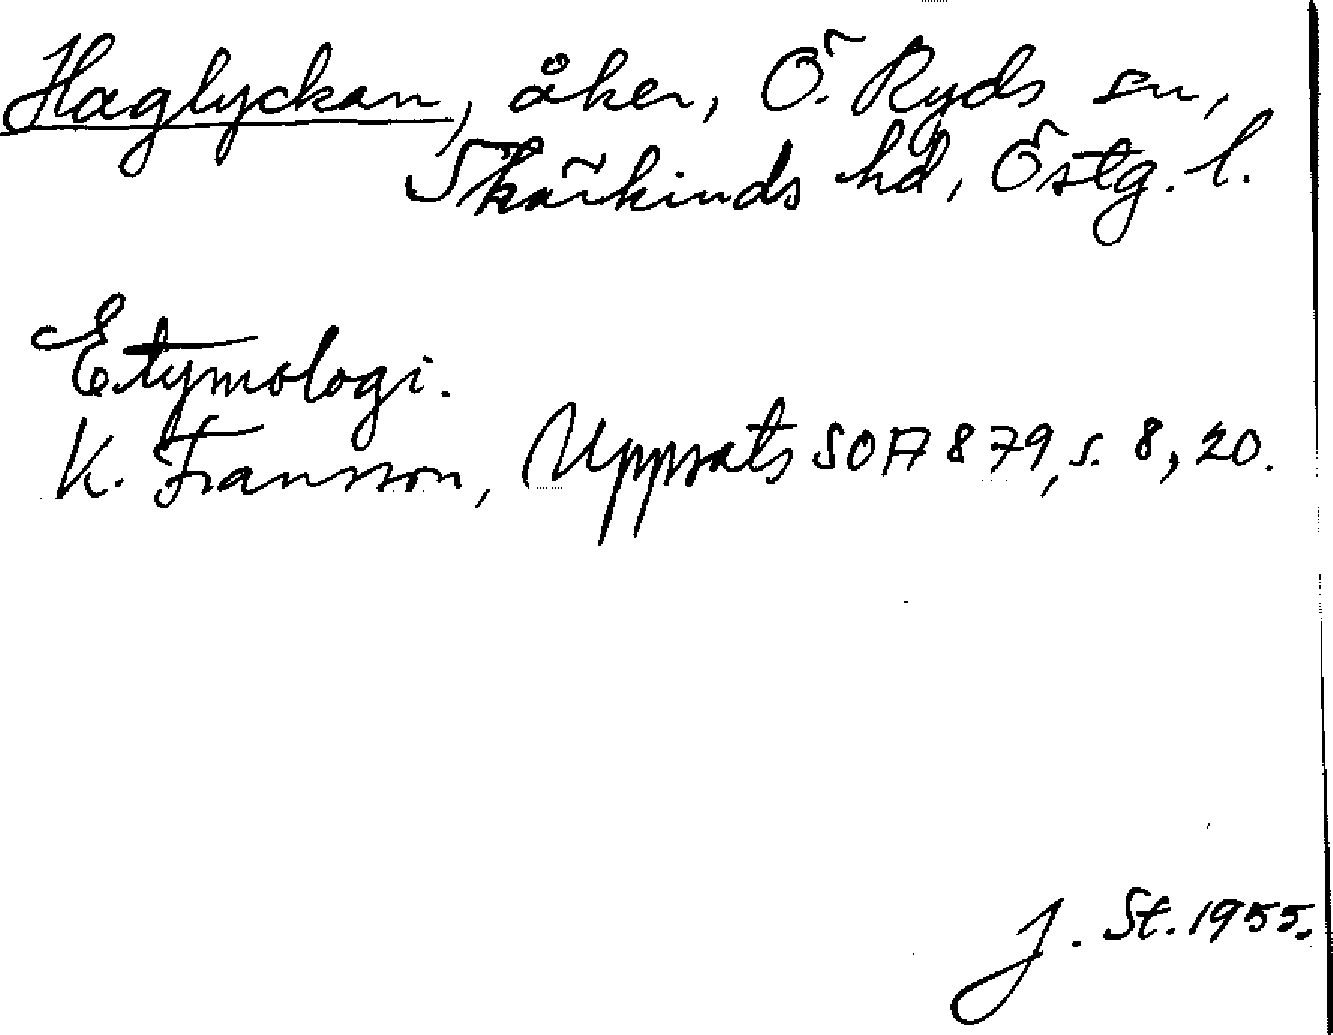 Haglyckan, åker, Ö. Ryds sn,
Skärkinds hd, Östg. l.
Etymologi.
K. Fransson, Uppsats SOA 879, s. 8, 20.
J. St. 1955.